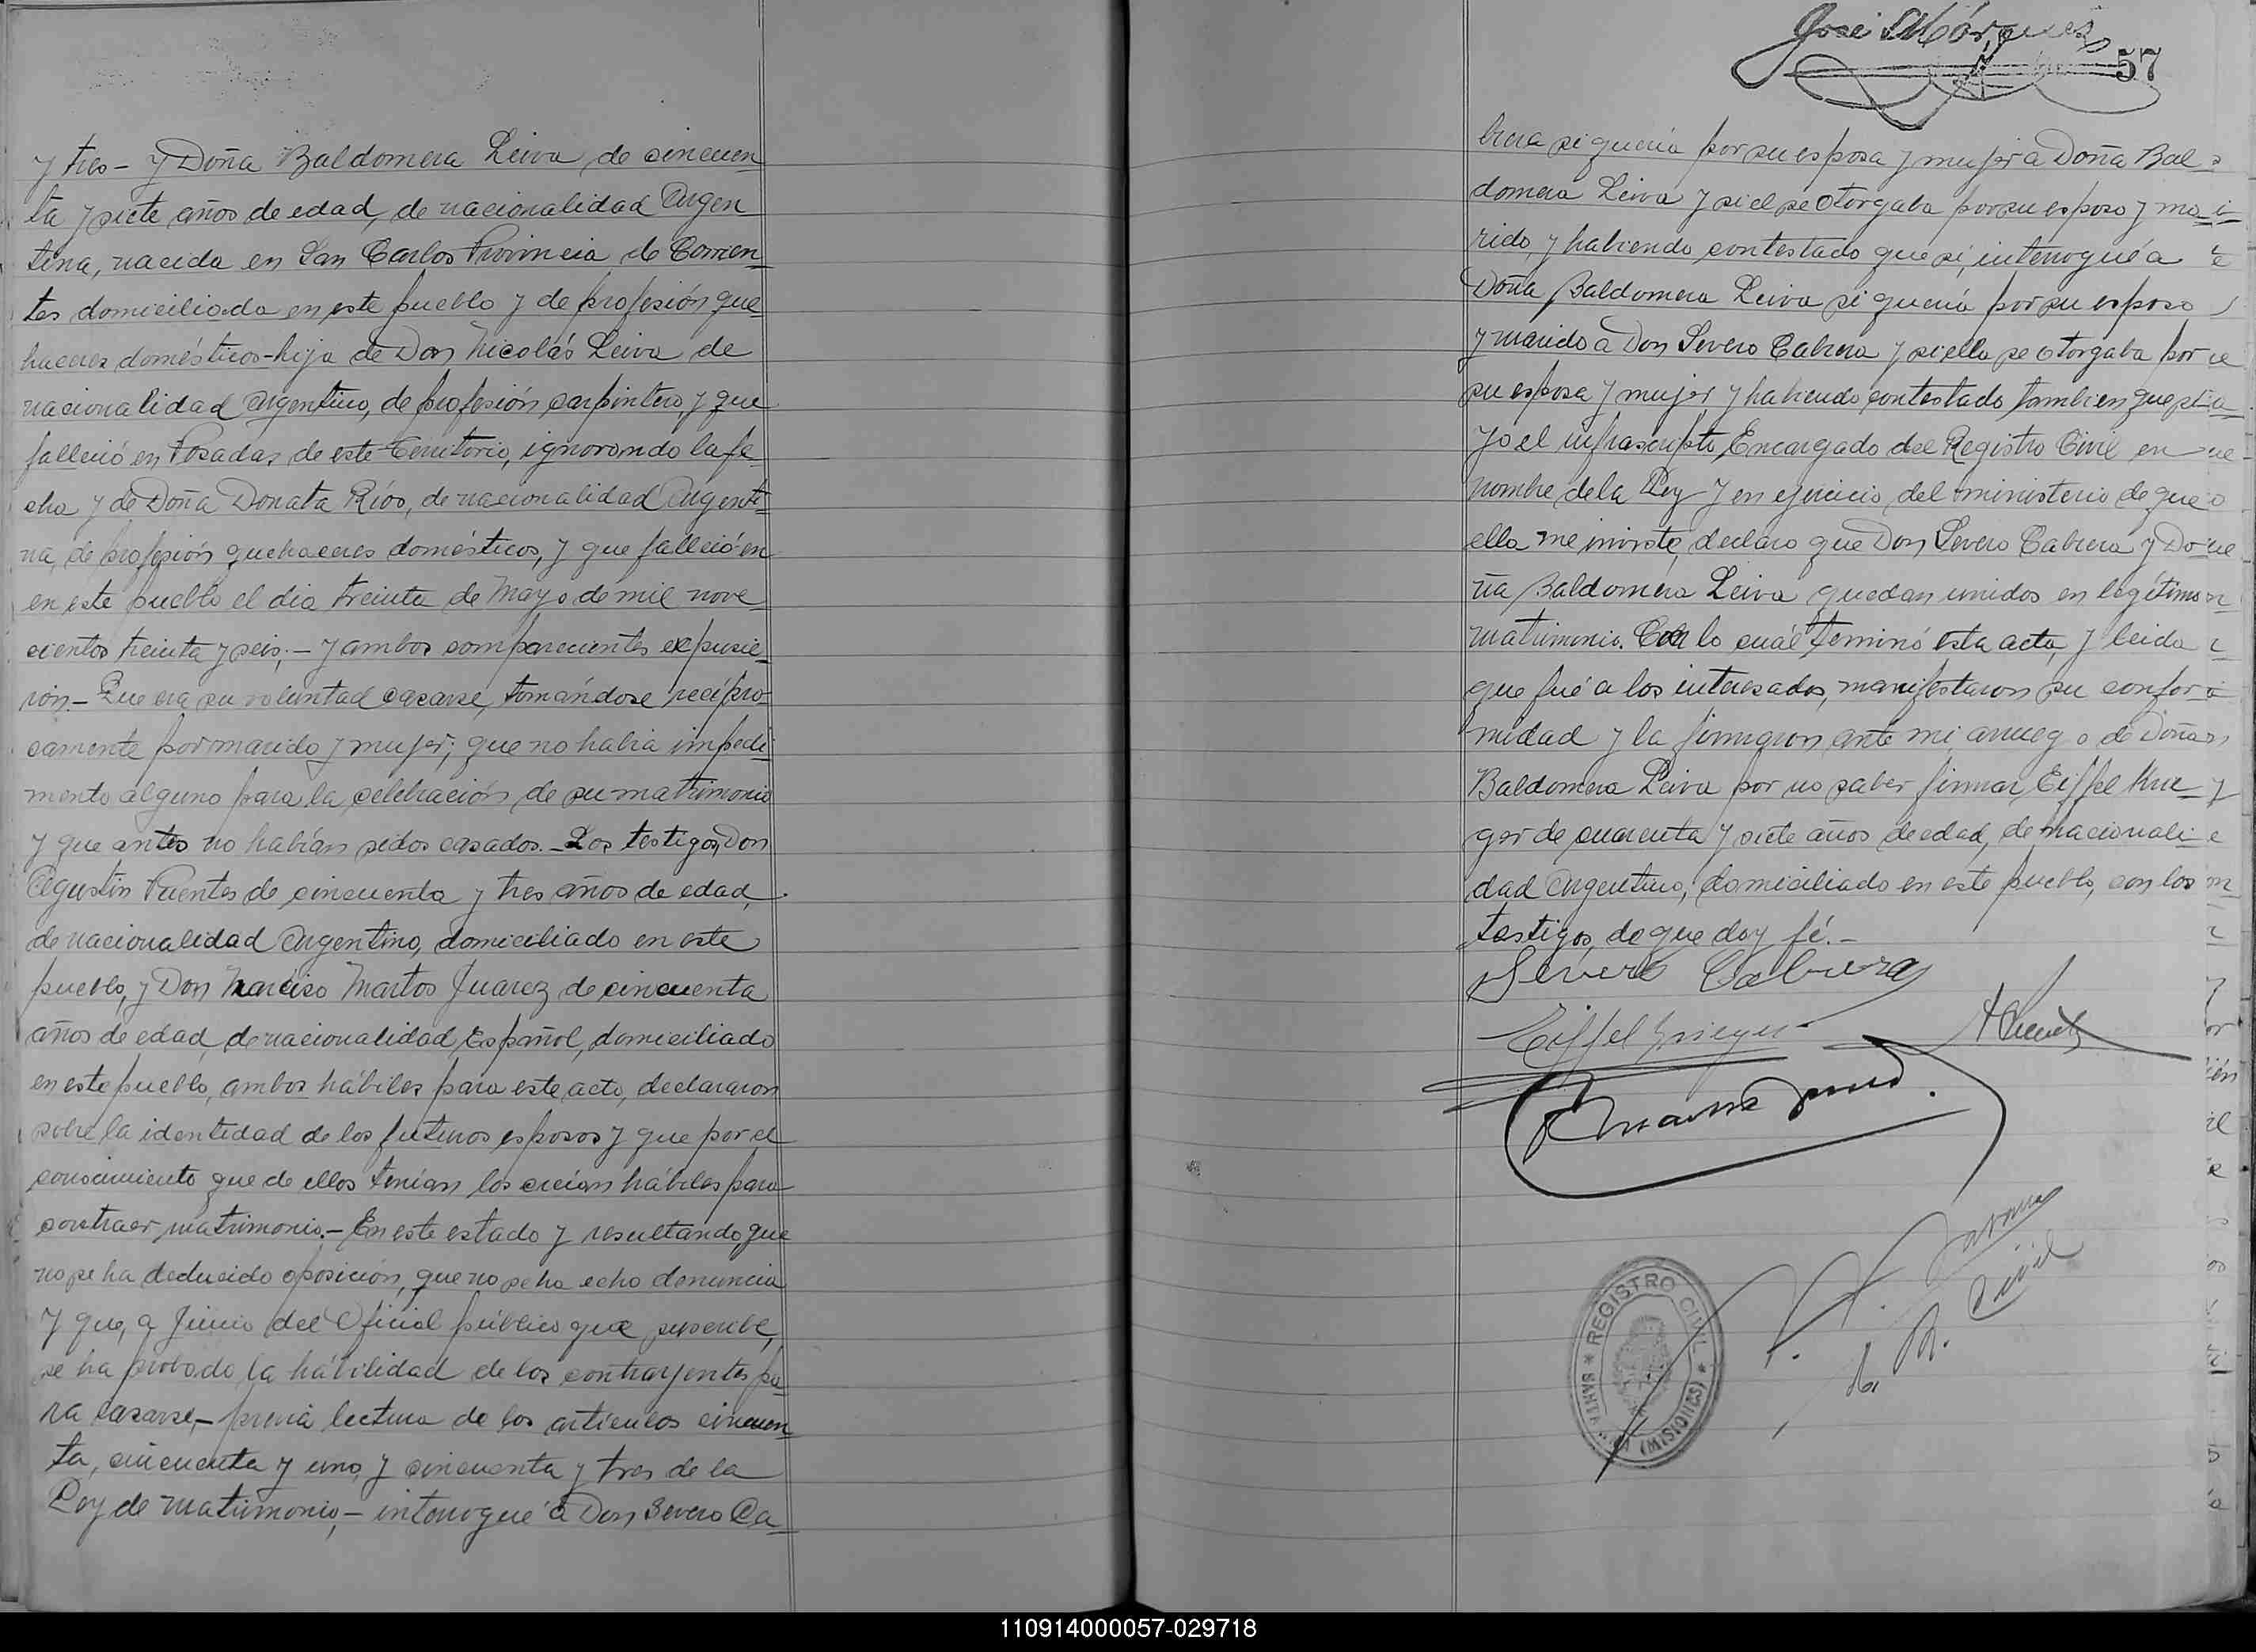 y tres - y Doña Baldomera Leiva de cincuen
ta y siete años de edad, de nacionalidad Argen
tina, nacida en San Carlos Provincia de Corrien
tes domiciliada en este pueblo y de profesión que
haceres domésticos - hija de Don Nicolás Leiva de
nacionalidad argentino, de profesión carpintero, y que
falleció en Posadas de este Territorio, ignorando la fe
cha y de Doña Donata Ríos, de nacionalidad Argenti
na, de profesión quehaceres domésticos, y que falleció en
en este pueblo el dia treinta de Mayo de mil nove
cientos treinta y seis; - y ambos comparecientes expusie
ron. - Que era su voluntad casarse, tomándose recípro
camente por marido y mujer; que no habia impedi
mento alguno para la celebración de su matrimonio
y que antes no habían sidos casados. - Los testigos, Don
Agustín Puentes de cincuenta y tres años de edad,
de nacionalidad Argentino, domiciliado en este
pueblo, y Don Narciso Martos Juarez de cincuenta
años de edad, de nacionalidad Español, domiciliado
en este pueblo, ambos hábiles para este acto, declararon
sobre la identidad de los futuros esposos y que por el
conocimiento que de ellos tenían los creían hábiles para
contraer matrimonio. - En este estado y resultando que
no se ha deducido oposición, que no se ha echo denuncia
y que, a juicio del Oficial público que suscribe,
se ha probado la hábilidad de los contrayentes pa
ra casarse, - previa lectura de los artículos cincuen
ta, cincuenta y uno, y cincuenta y tres de la
Ley de Matrimonio, - interrogué a Don Severo Ca
José Márques
57
brera si quería por su esposa y mujer a Doña Bal
domera Leiva y si el se otorgaba por su esposo y ma
rido, y habiendo contestado que si, interrogué a
Doña Baldomera Leiva si quería por su esposo
y marido a Don Severo Cabrera y si ella se otorgaba por
su esposa y mujer y habiendo contestado tambien que si
yo el infrascripto, Encargado del Registro Civil en
nombre de la Ley y en ejercicio del ministerio de que
ella me inviste, declaro que Don Severo Cabrera y Do
ña Baldomera Leiva quedan unidos en legítimo
matrimonio. Con lo cuál terminó esta acta, y leida
que fué a los interesados, manifestaron su confor
midad y la firmaron ante mi, a ruego de Doña
Baldomera Leiva por no saber firmar, Eiffel Krie
ger de cuarenta y siete años de edad, de nacionali
dad Argentino, domiciliado en este pueblo, con los
testigos, de que doy fé. -
Severo Cabrera
Eiffel Krieger
REGISTRO CIVIL
SANTA
(MISIONES)
Civil
110914000057-029718